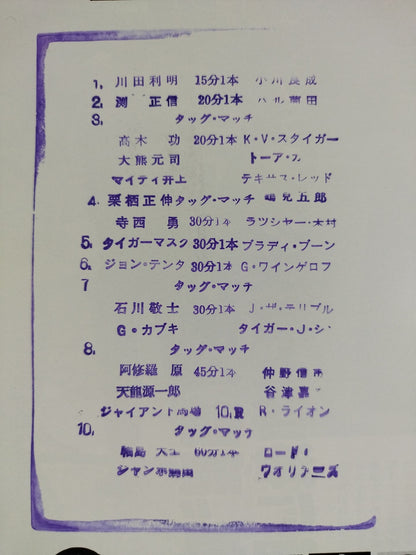 1. 川田利明 15分1本 小川良成
2. 渕 正信 20分1本 ハル薗田
3. タッグ・マッチ
高木 功 20分1本 K・V・スタイガー
大熊元司 トーア・カ
マイティ井上 テキサス・レッド
4. 栗栖正伸 タッグ・マッチ 鶴見五郎
寺西 勇 30分1本 ラッシャー・木村
5. タイガーマスク 30分1本 ブラディ・ブーン
6. ジョン・テンタ 30分1本 G・ワインゲロフ
7 タッグ・マッチ
石川敬士 30分1本 J・ザ・テリブル
G・カブキ タイガー・J・シ
8. タッグ・マッチ
阿修羅 原 45分1本 仲野信市
天龍源一郎 谷津嘉
ジャイアント馬場 10 R・ライオン
10. タッグ・マッチ
輪島 大士 60分1本 ロード
ジャンボ鶴田 ウォリアーズ